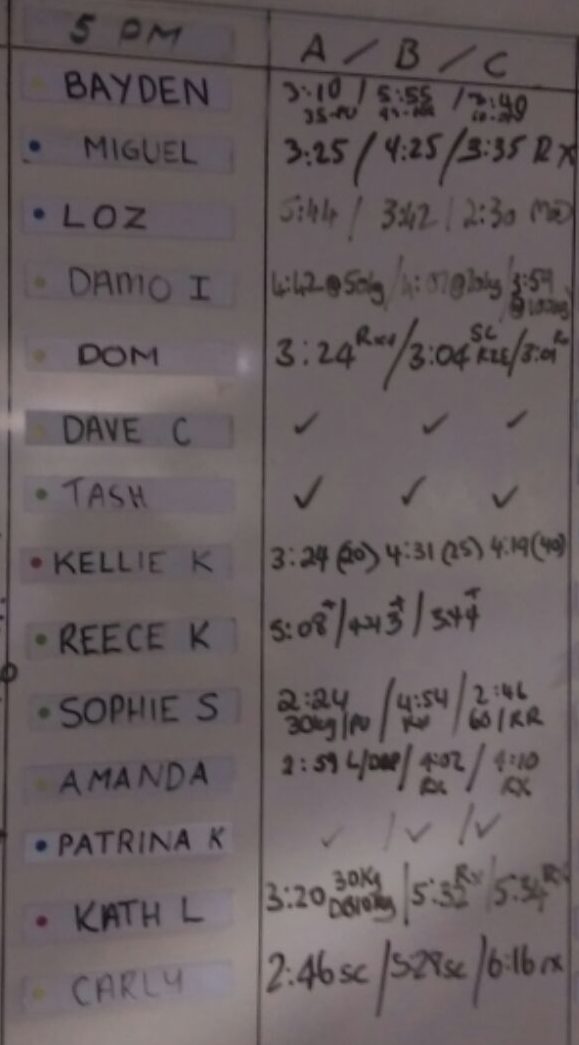 5 PM A / B / C
BAYDEN 3:10 / 5:55 / 3:40
35-PU
MIGUEL 3:25 / 4:25 / 3:35 RX
LOZ 5:44 / 3:42 / 2:30
DAMO I 4:42@50kg / 4:07@30kg / 3:59
DOM 3:24 Rxx / 3:04 SC / 3:01
DAVE C ✓ ✓ ✓
TASH ✓ ✓ ✓
KELLIE K 3:24 (20) 4:31 (25) 4:19 (40)
REECE K 5:08 / 4:43 / 3:44
SOPHIE S 2:24 / 4:54 / 2:46
30kg/PU 60/RR
AMANDA 2:59 / 4:02 / 4:10
RX RX
PATRINA K ✓ / ✓ / ✓
KATH L 3:20 30Kg / 5:32 Rx / 5:34 Rx
DB10kg
CARLY 2:46 sc / 5:29 sc / 6:16 rx